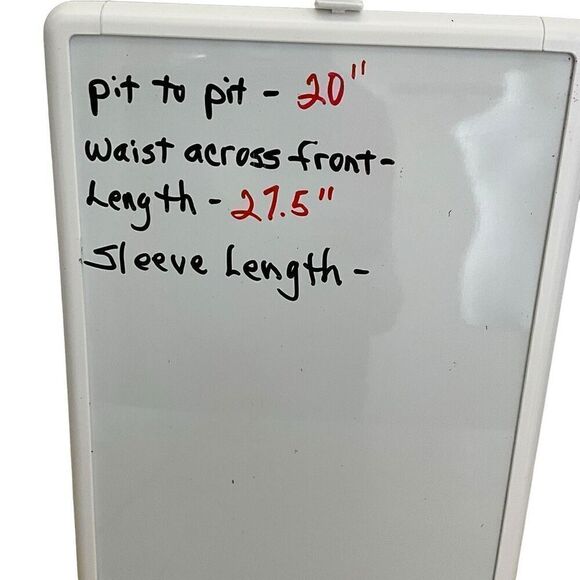 pit to pit - 20"
waist across front -
Length - 27.5"
Sleeve Length -